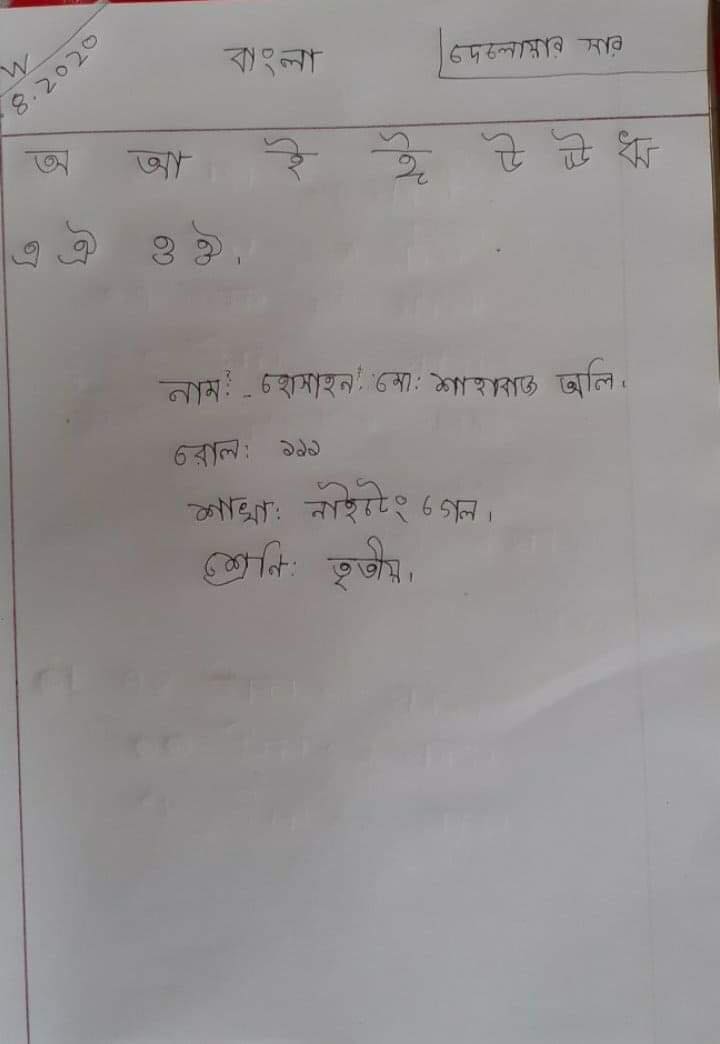 W
8.2020
বাংলা
দেলোয়ার সার
অ আ ই ঈ উ ঊ ঋ
এ ঐ ও ঔ.
নামঃ - মোঃ অলি.
রোল: ১১১
শাখা: নাইটেং গেল.
শ্রেনি: তৃতীয়.